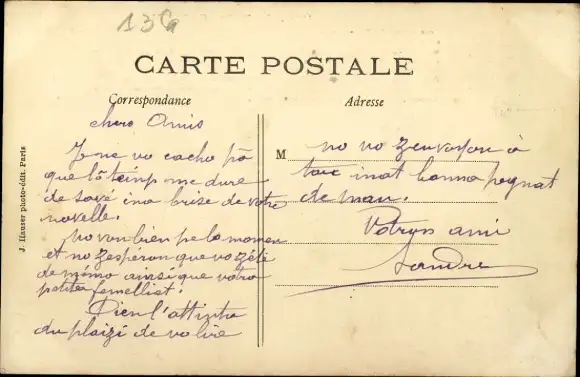 13
CARTE POSTALE
Correspondance
Adresse
J. Hauser photo-édit. Paris
chers Amis
Je ne vo cache pâ
que lô teinp me dure
de savé ina brise de votre
novelle.
No von bien pe lo momen
et no zespéron que vo zéte
de mémo ainsi que votra
petita femellist.
Dien l'attinta
du plaizi de vo lire
M no vo zenvoyon à
toic inat bonna pognat
de man.
Votron ami
Landre